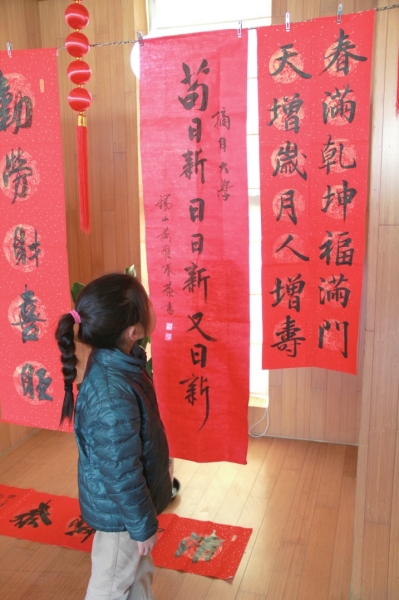 春滿乾坤福滿門
天增歲月人增壽
摘自大學
苟日新日日新又日新
勤勞財喜旺